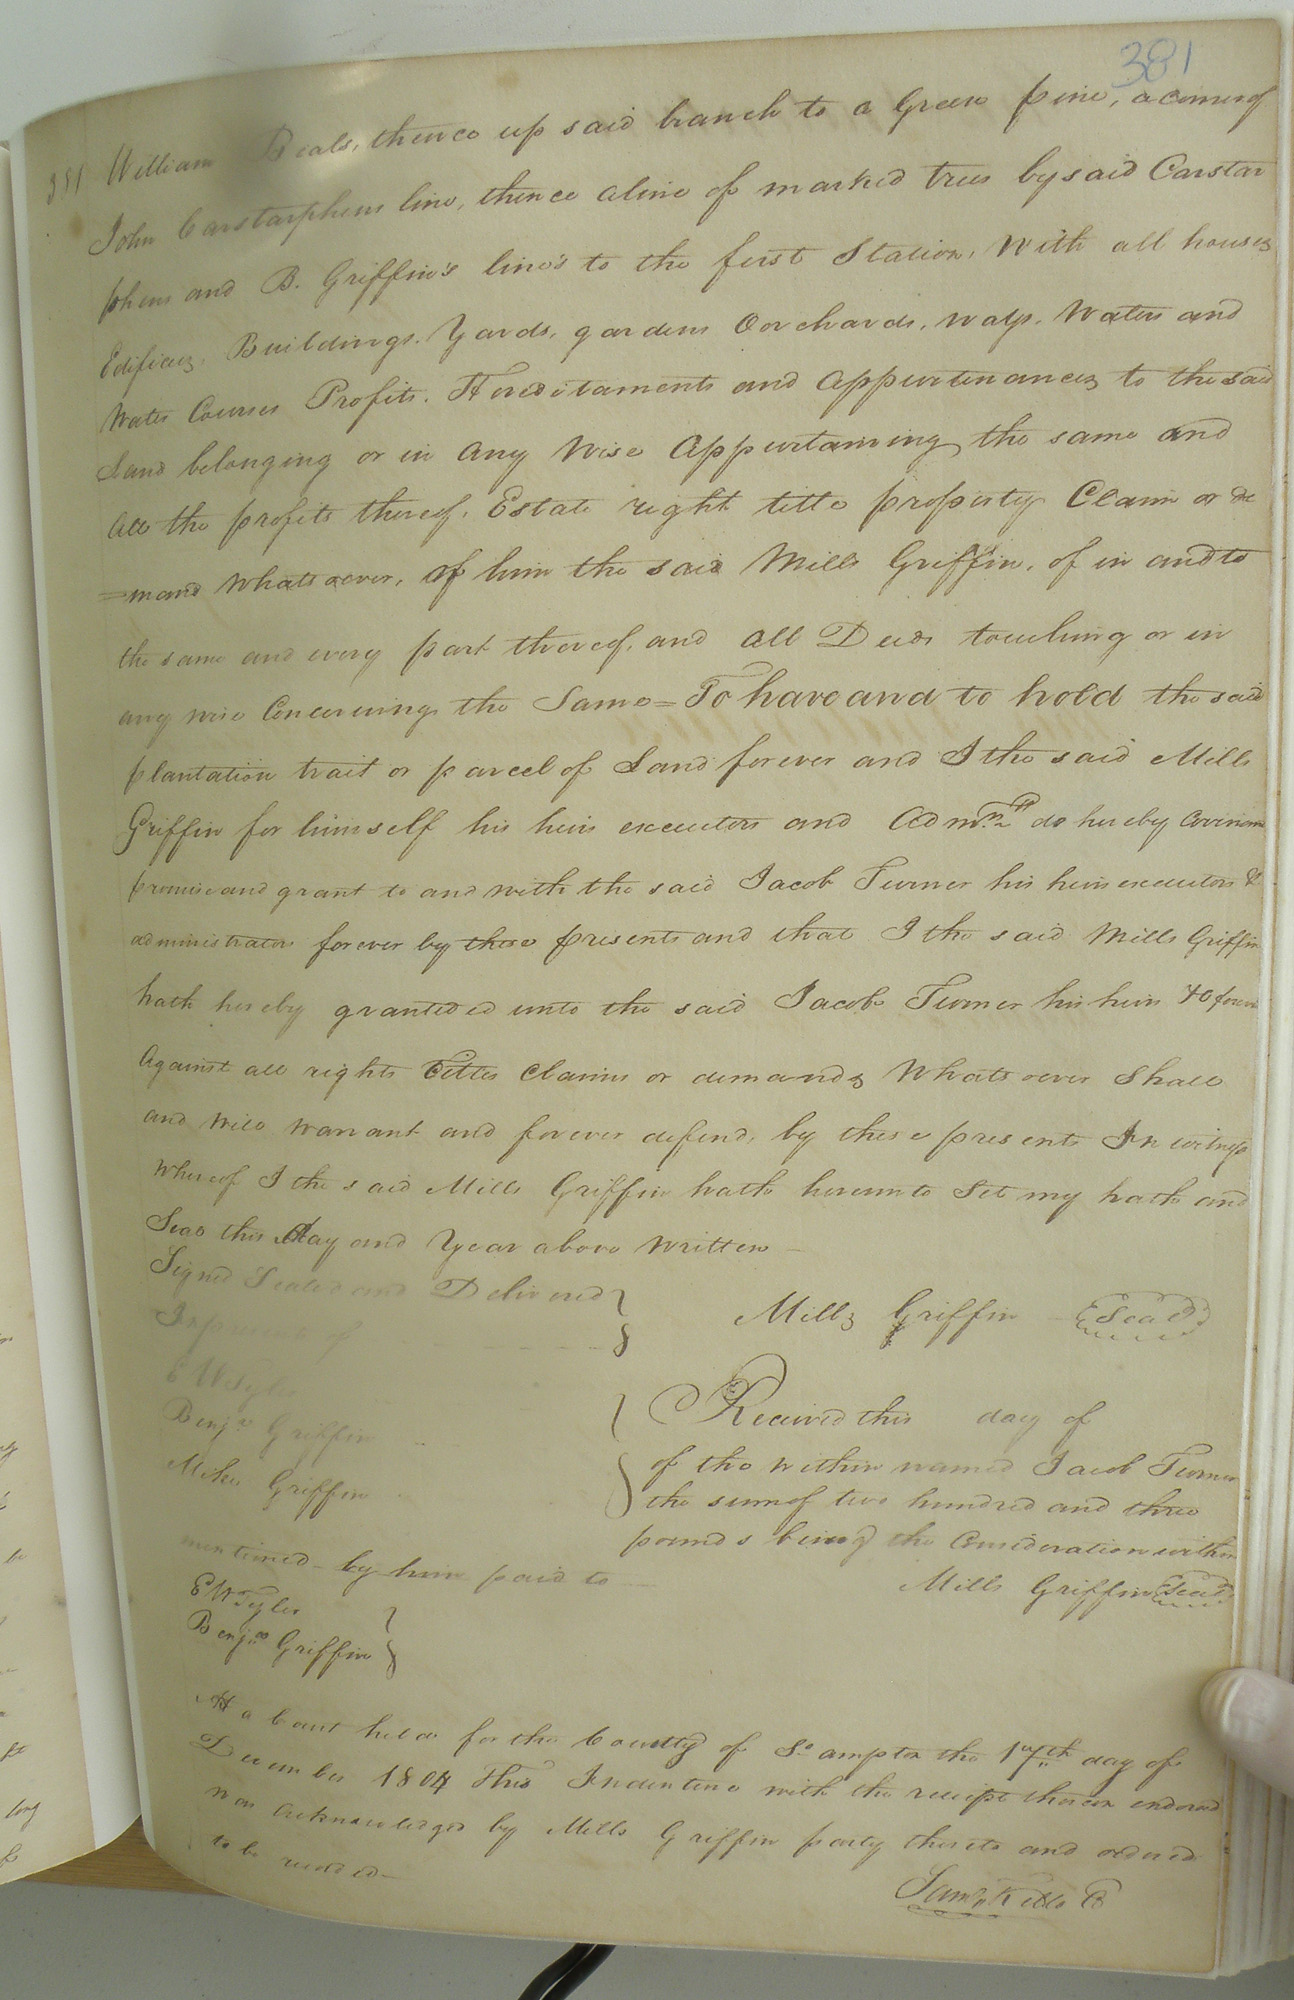 381
381 William Beals, thence up said branch to a Green pine, a corner of
John Carstarphens line, thence a line of marked trees by said Carstar
phens and B. Griffin's line's to the first Station, With all houses
Edifices, Buildings. Yards, gardens Oorchards, ways. Waters and
Water Courses Profits. Hereditaments and appurtenances to the said
Land belonging or in any Wise appurtaining the same and
All the profits thereof, Estate right title property Claim or de
=mand Whatsoever, of him the said Mills Griffin, of in and to
the same and every part thereof, and all Deeds touching or in
any wise Concerning the Same = To have and to hold the said
plantation trait or parcel of Land forever and I the said Mills
Griffin for himself his heirs executors and Adm.rs do hereby Covenant
promise and grant to and with the said Jacob Turner his heirs executors &
administrators forever by these presents and that I the said Mills Griffin
hath hereby granteded unto the said Jacob Turner his heirs &c forever
Against all rights Titles Claims or demands Whatsoever Shall
and Will warrant and forever defend, by these presents In witness
Whereof I the said Mills Griffin hath hereunto Set my hath and
Seal this day and Year above Written
Signed Sealed and Delivered }
In presence of
Mills Griffin (Seal)
E W Tyler
Benj.a Griffin
Miles Griffin
Received this day of
of the within named Jacob Turner
the sum of two hundred and three
pounds being the Consideration within
mentioned by him paid to
Mills Griffin (Seal)
E W Tyler
Benj.a Griffin }
At a Court held for the County of So.ampton the 17th day of
December 1804 This Indenture with the receipt thereon endorsed
was Acknowledged by Mills Griffin party thereto and ordered
to be recorded
Saml. Kello C